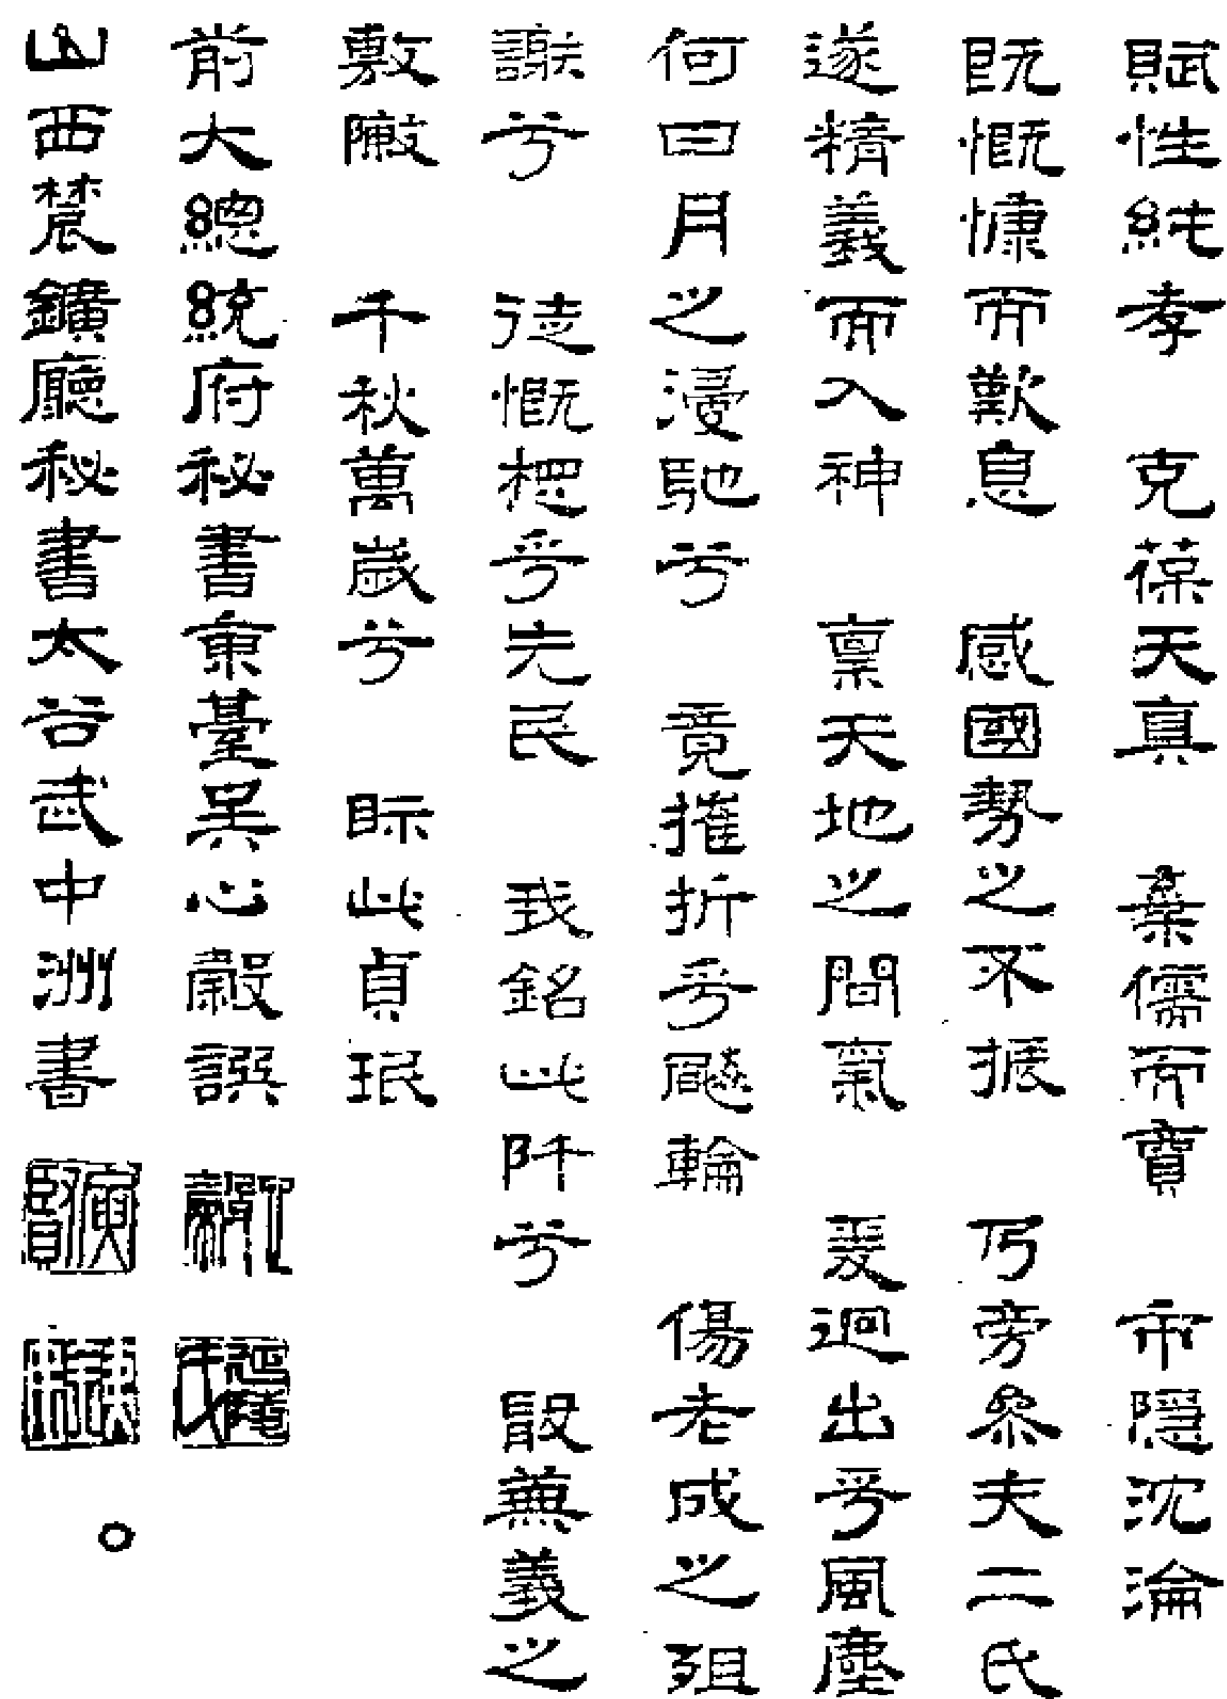 賦性純孝　克葆天真　棄儒而賈　市隱沈淪
既慨慷而歎息　感國勢之不振　乃旁參夫二氏
遂精義而入神　稟天地之間氣　爰迥出乎風塵
何日月之漫馳兮　竟摧折乎颷輪　傷老成之殂
謝兮　徒慨想乎先民　我銘此阡兮　殹無義之
敷廠　千秋萬歲兮　眎此貞珉
前大總統府秘書東臺吳心穀譔
山西農鑛廳秘書太谷武中洲書